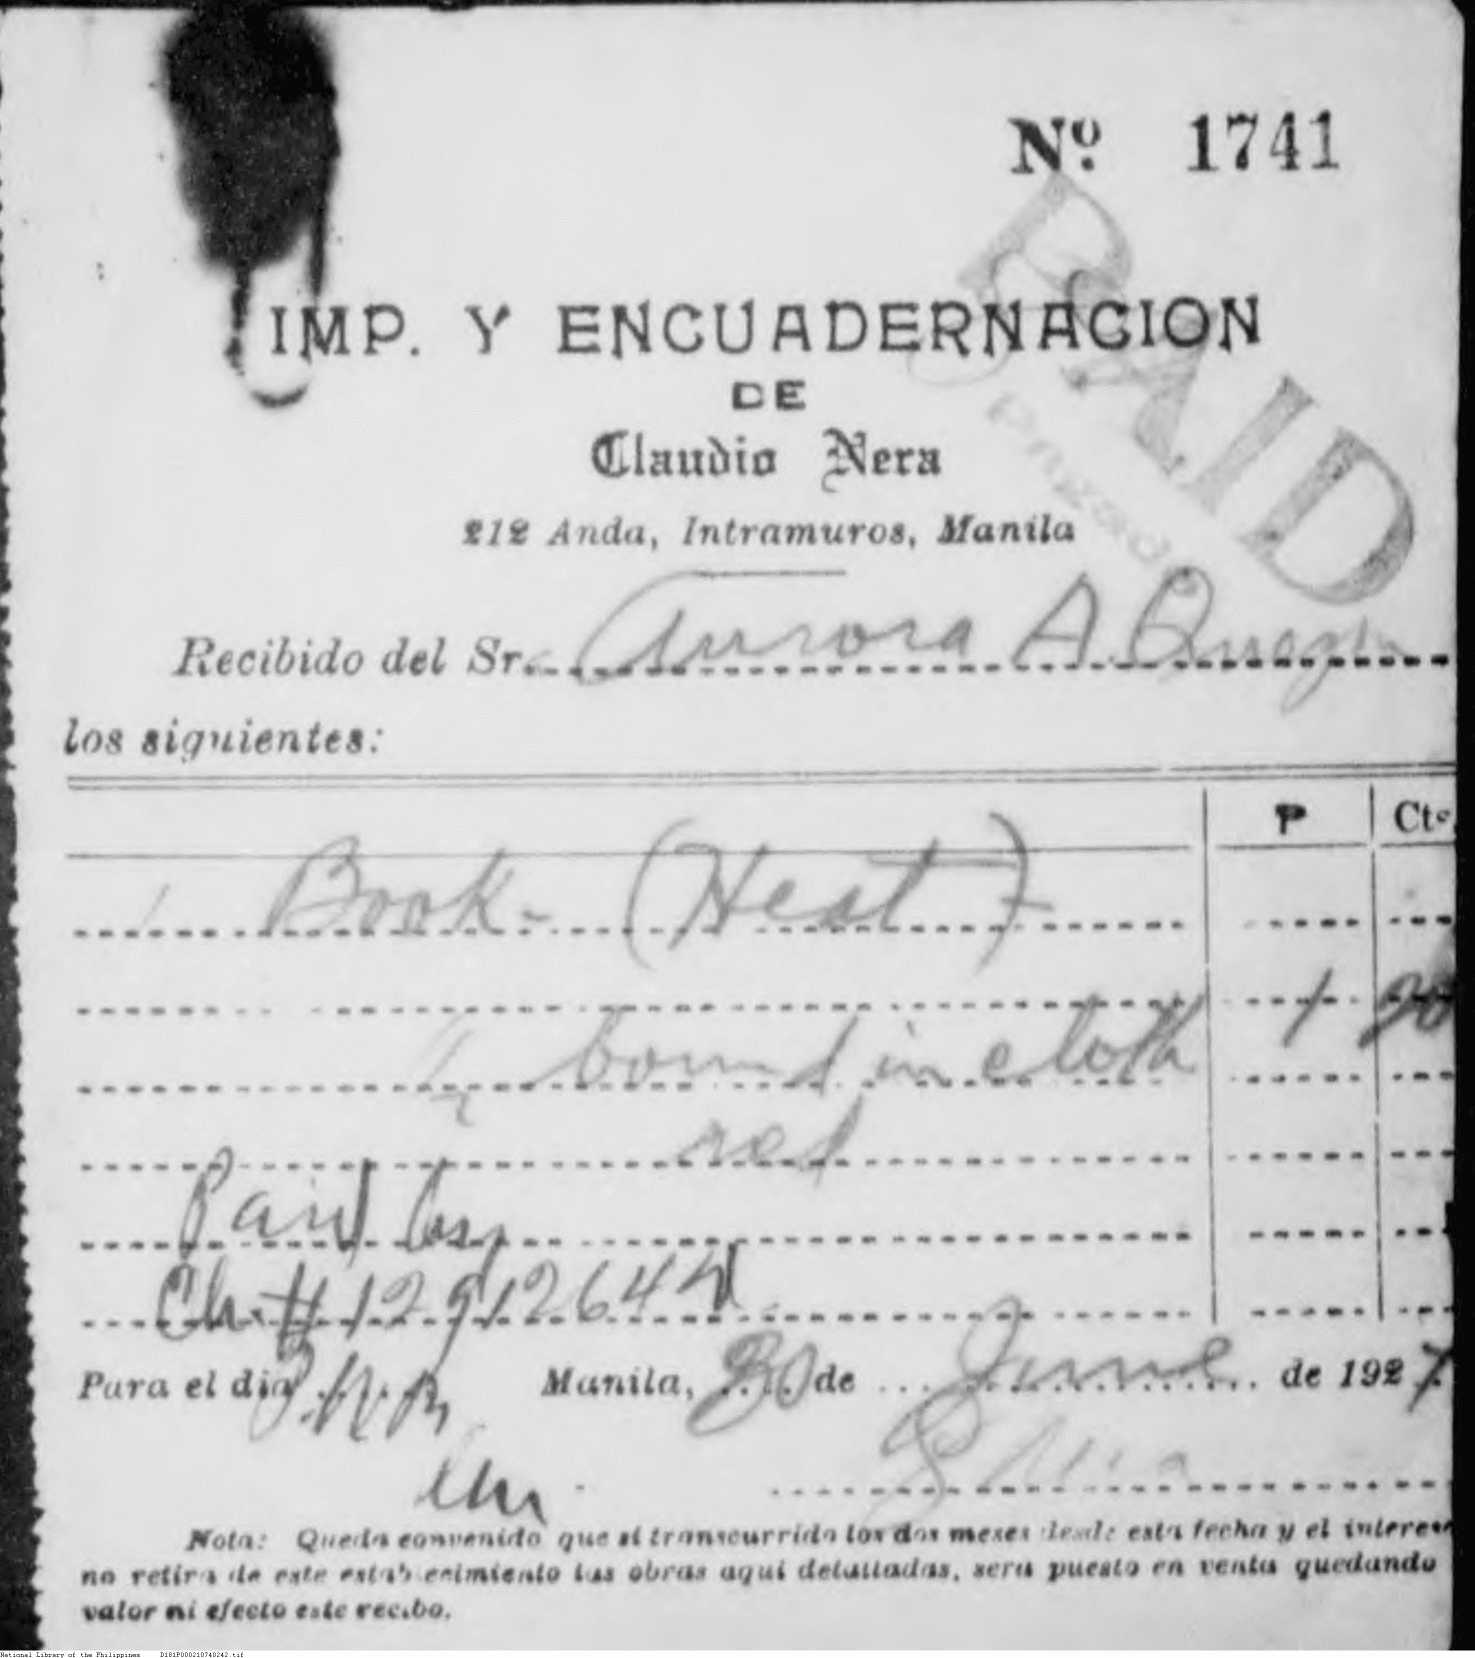 Nº 1741
PAID
IMP. Y ENCUADERNACION
DE
Claudio Nera
212 Anda, Intramuros, Manila
Recibido del Sr. Aurora A. Quezon
los siguientes:
P Cts
1 Book - (Heat)
1 20
bound in cloth
red
Paid by
Ch. # 129126442
Para el dia P.N.B. Manila, 30 de June de 1927
Nota: Queda convenido que si transcurrido los dos meses desde esta fecha y el interes
no retira de este establecimiento las obras aqui detalladas, sera puesto en venta quedando
valor ni efecto este recibo.
National Library of the Philippines D181P000210740242.tif